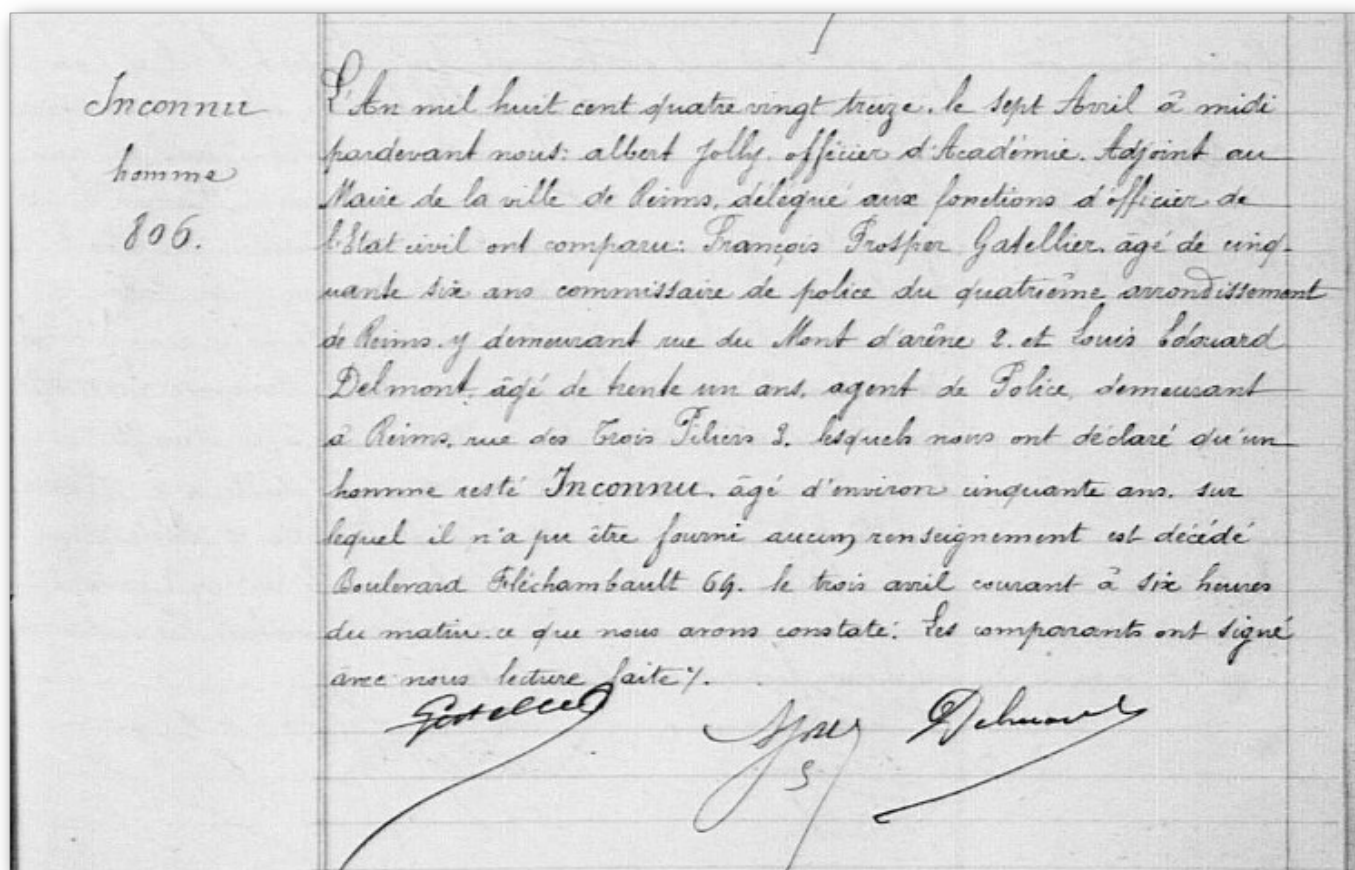 Inconnu
homme
806.
L'An mil huit cent quatre vingt treize. le sept Avril à midi
pardevant nous: albert Jolly. officier d'Académie. Adjoint au
Maire de la ville de Reims, délégué aux fonctions d'officier de
l'Etat civil ont comparu: François Prosper Gatellier. âgé de cinq-
uante six ans commissaire de police du quatrième arrondissement
de Reims. y demeurant rue du Mont d'arène 2. et Louis Edouard
Delmont. âgé de trente un ans, agent de Police, demeurant
à Reims, rue des Trois Piliers 3. lesquels nous ont déclaré qu'un
homme resté Inconnu. âgé d'environ cinquante ans. sur
lequel il n'a pu être fourni aucun renseignement est décédé
Boulevard Fléchambault 69. le trois avril courant à six heures
du matin. ce que nous avons constaté. Les comparants ont signé
avec nous lecture faite ·/.
Gatellier
Delmont